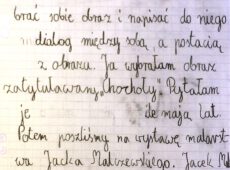 brać sobie obraz i napisać do niego
dialog między sobą, a postacią
z obrazu. Ja wybrałam obraz
zatytułowany „Chochoły”. Pytałam
je ile mają lat.
Potem poszliśmy na wystawę malarst
wa Jacka Malczewskiego. Jacek M